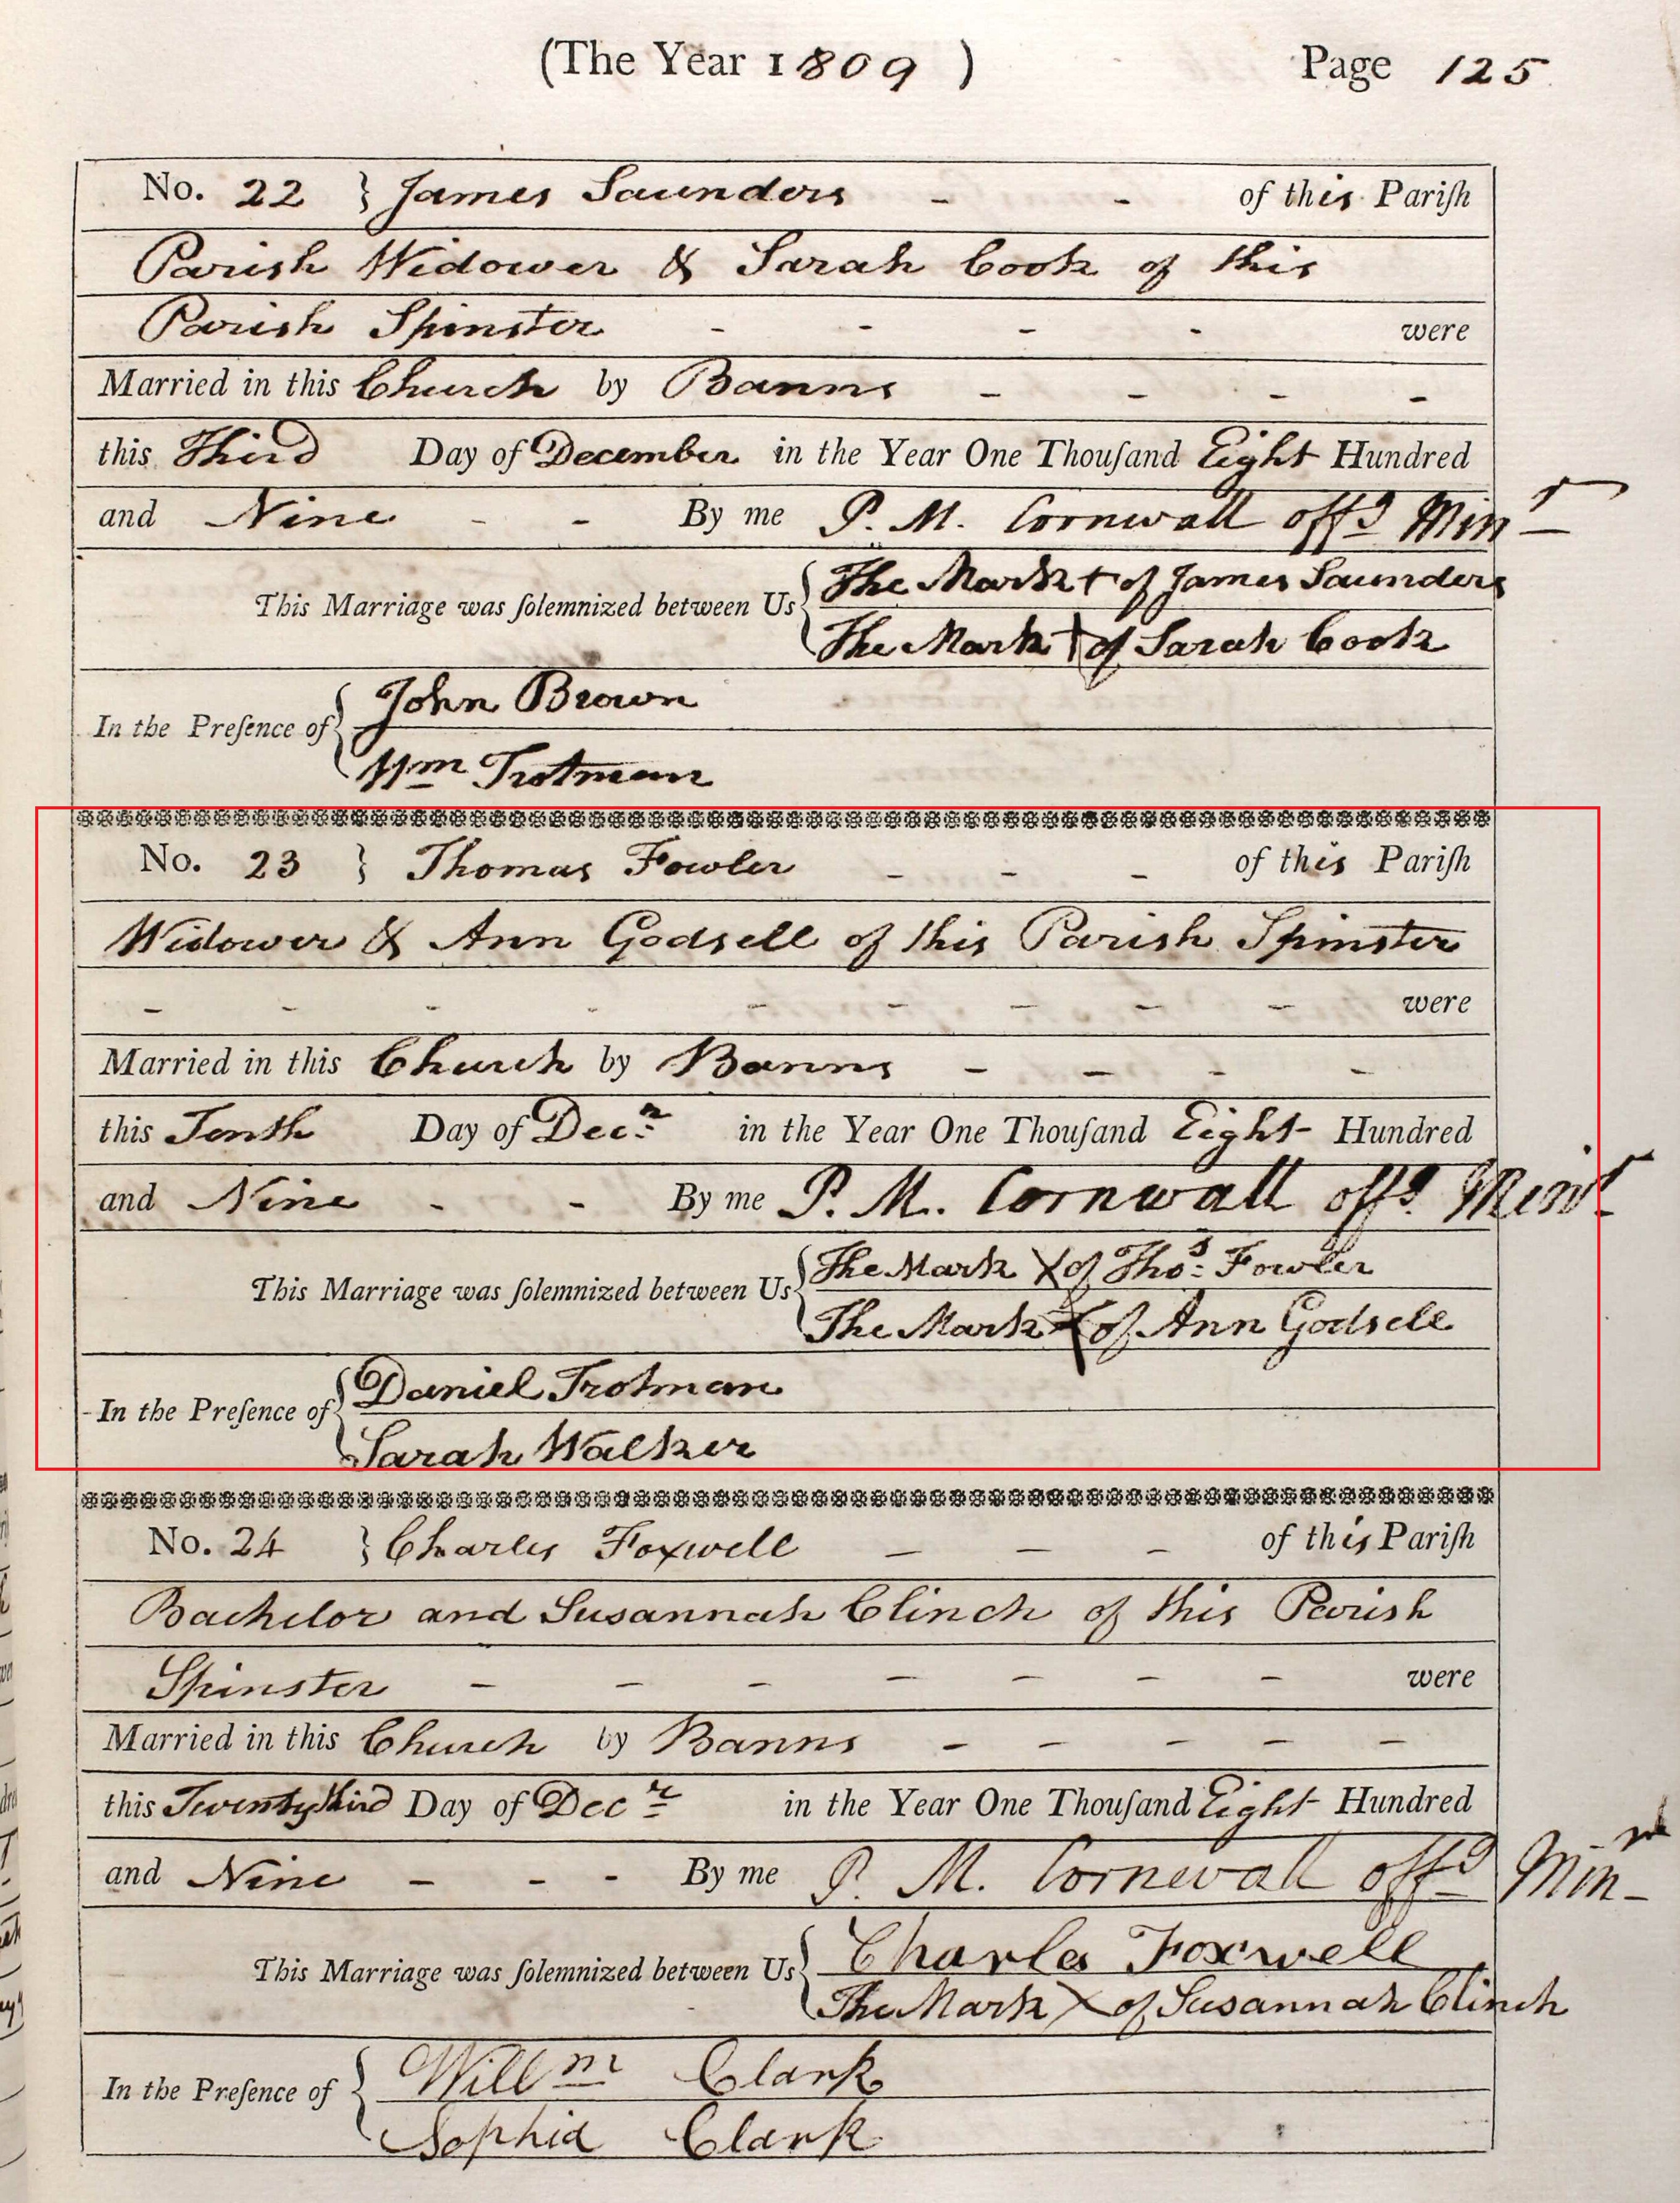 (The Year 1809 ) Page 125
No. 22 } James Saunders - - of this Pariſh
Parish Widower & Sarah Cook of this
Parish Spinster - - - - were
Married in this Church by Banns - - - -
this Third Day of December in the Year One Thouſand Eight Hundred
and Nine - - By me P. M. Cornwall offg Minr
This Marriage was ſolemnized between Us { The Mark + of James Saunders
The Mark + of Sarah Cook
In the Preſence of { John Brown
Wm Trotman
No. 23 } Thomas Fowler - - - of this Pariſh
Widower & Ann Godsell of this Parish Spinster
- - - - - - - - - were
Married in this Church by Banns - - - -
this Tenth Day of Decr in the Year One Thouſand Eight Hundred
and Nine - - By me P. M. Cornwall offg Minr
This Marriage was ſolemnized between Us { The Mark X of Thos Fowler
The Mark X of Ann Godsell
In the Preſence of { Daniel Trotman
Sarah Walker
No. 24 } Charles Foxwell - - - of this Pariſh
Bachelor and Susannah Clinch of this Parish
Spinster - - - - - - - were
Married in this Church by Banns - - - - -
this Twenty third Day of Decr in the Year One Thouſand Eight Hundred
and Nine - - - By me P. M. Cornwall offg Minr
This Marriage was ſolemnized between Us { Charles Foxwell
The Mark X of Susannah Clinch
In the Preſence of { Willm Clark
Sophia Clark